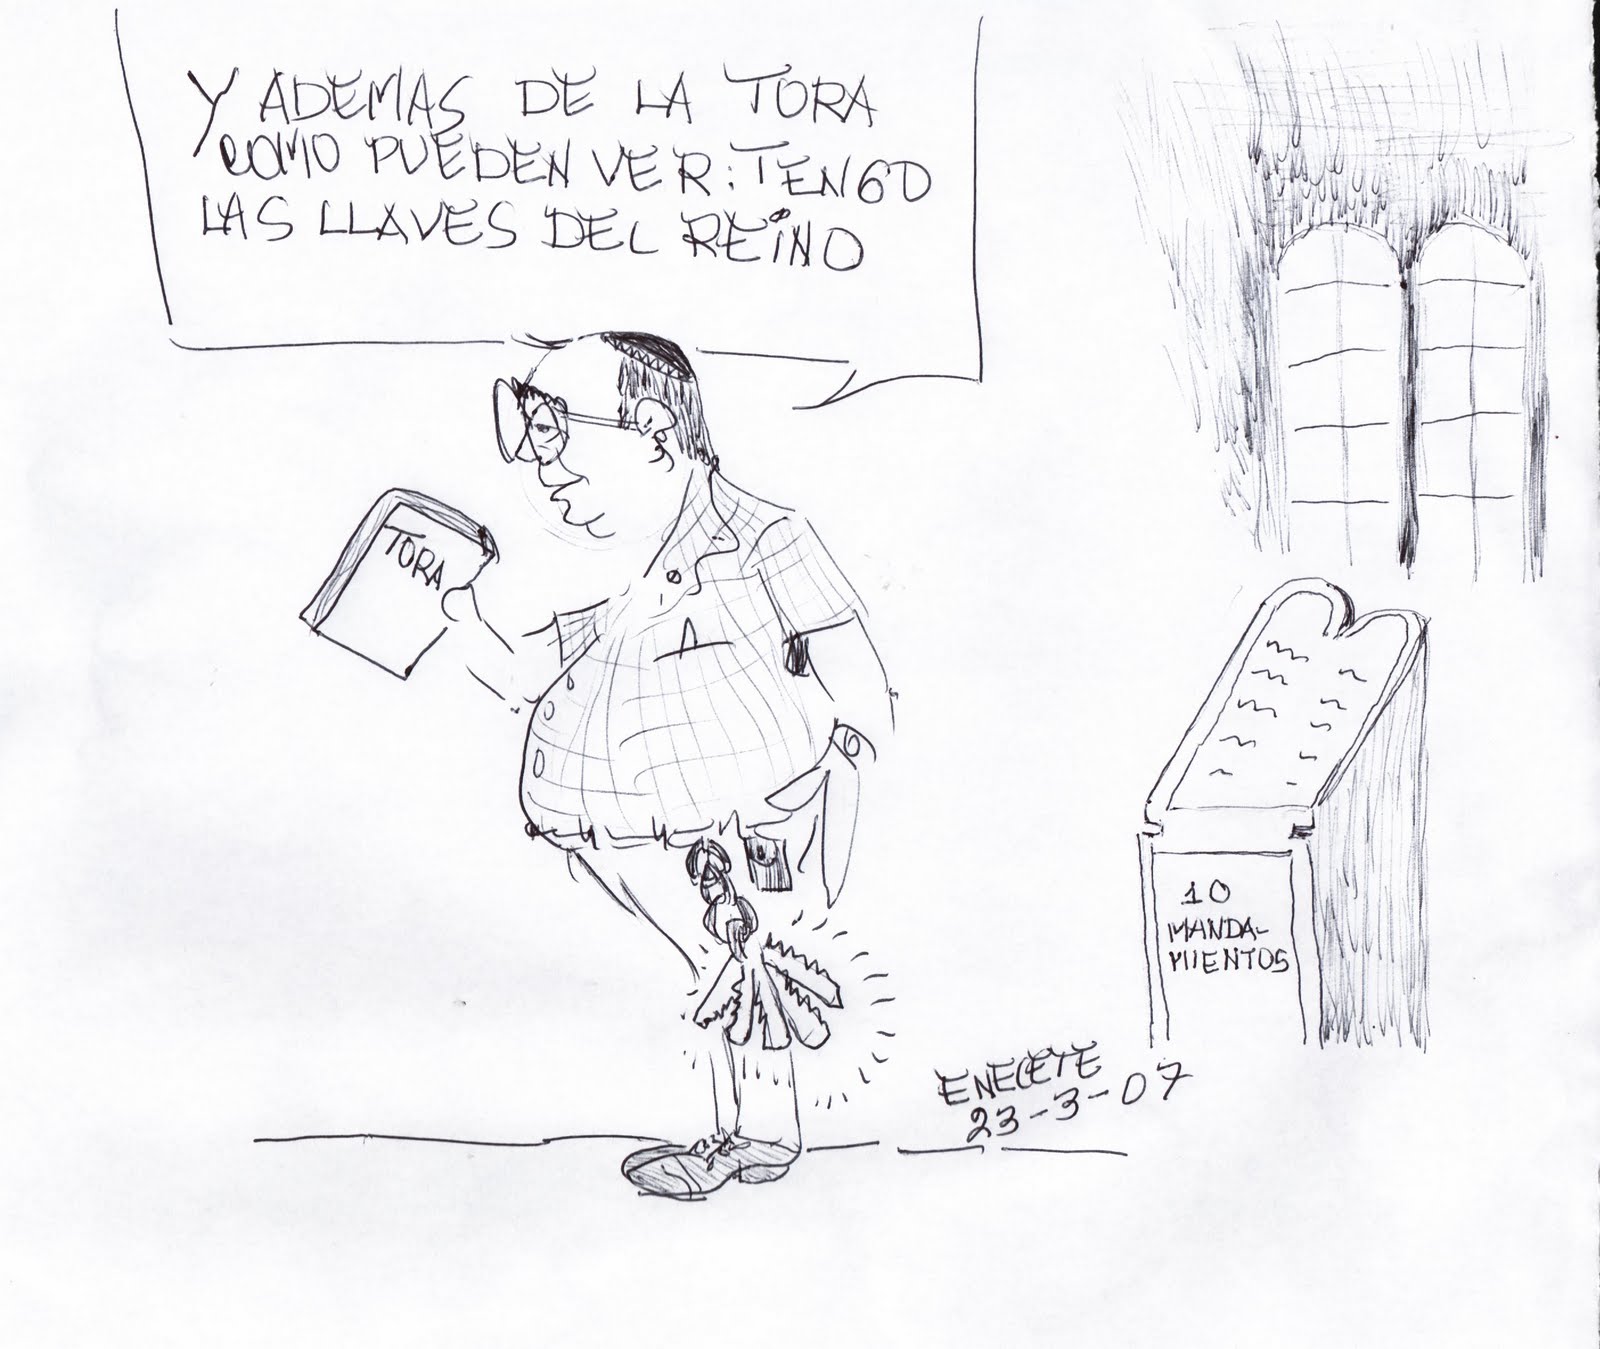 Y ADEMAS DE LA TORA
COMO PUEDEN VER: TENGO
LAS LLAVES DEL REINO
TORA
10
MANDA-
MIENTOS
ENECETE
23-3-07